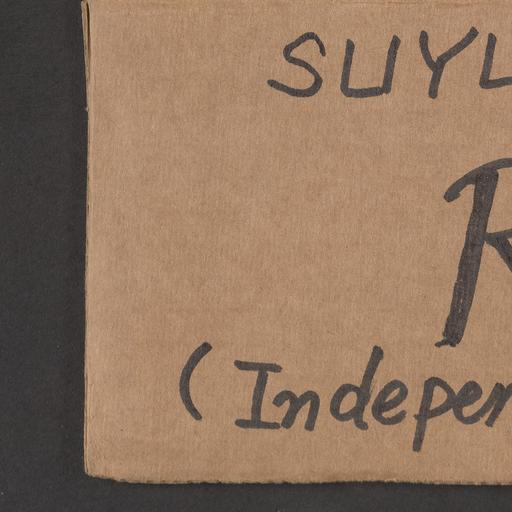 SUYL
R
(Indeper